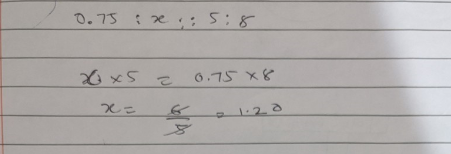 0.75 : x :: 5 : 8
x × 5 = 0.75 × 8
x = 6/5 = 1.20